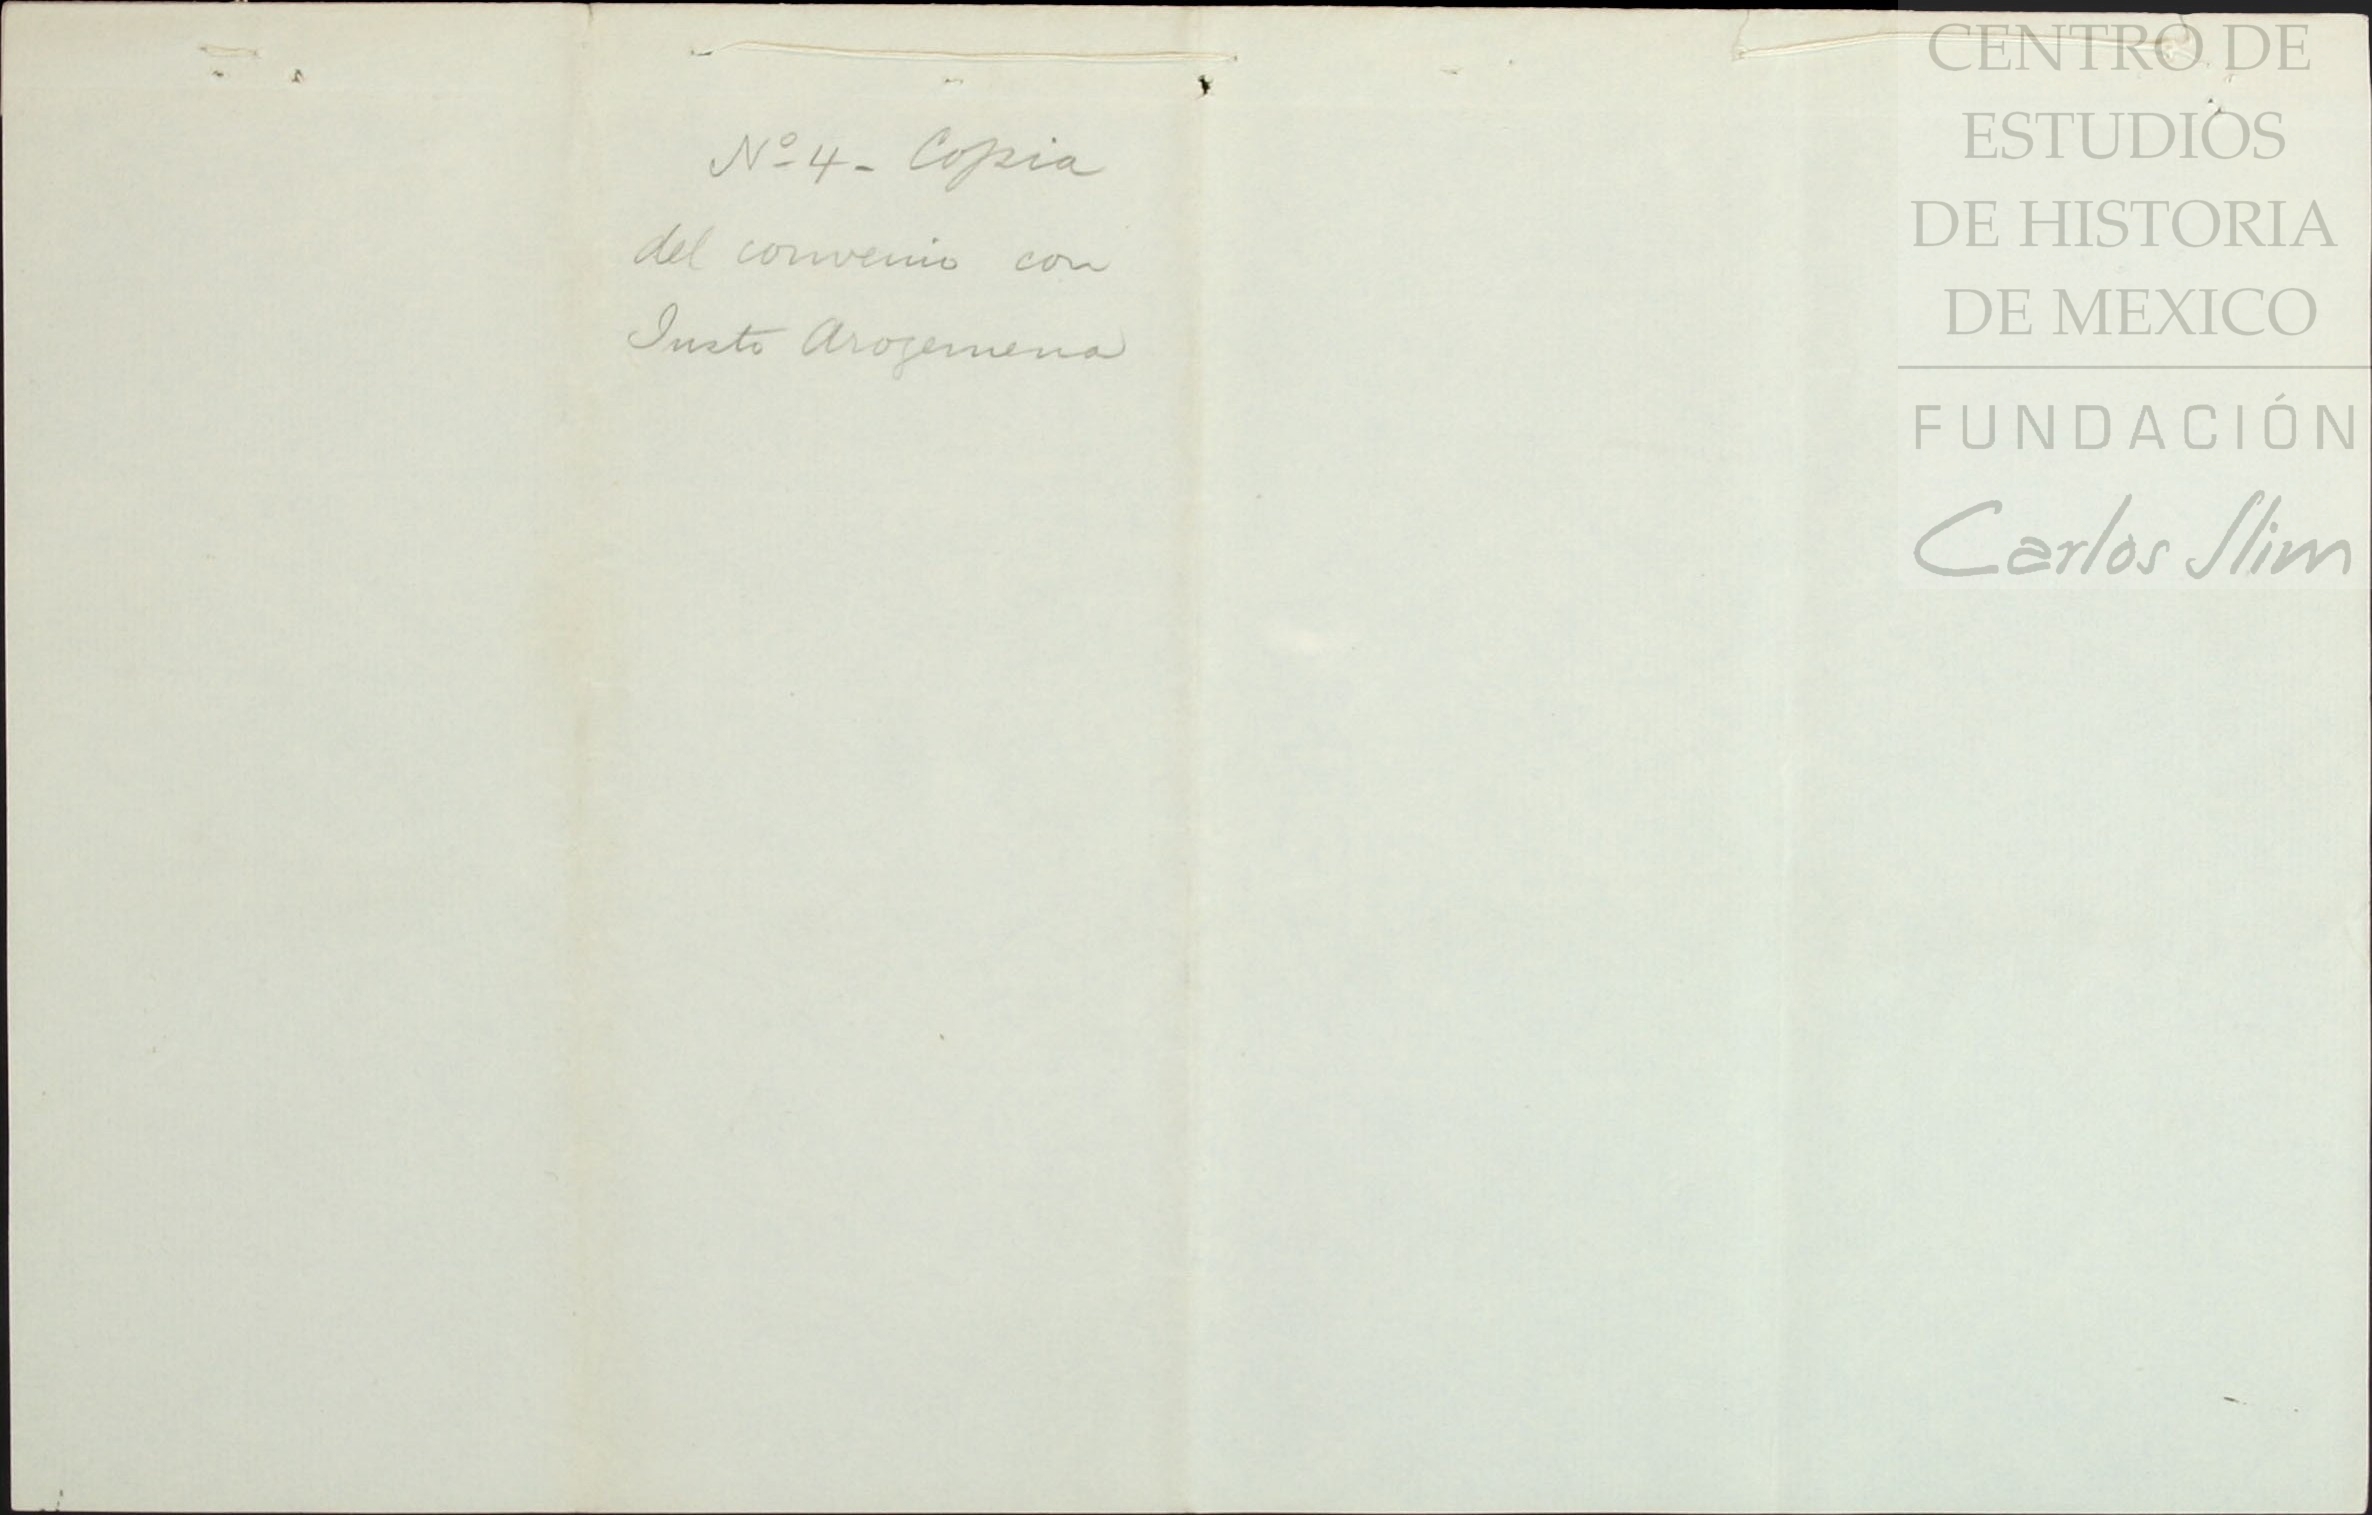 Nº 4 - Copia
del convenio con
Justo Arosemena
CENTRO DE
ESTUDIOS
DE HISTORIA
DE MEXICO
FUNDACIÓN
Carlos Slim